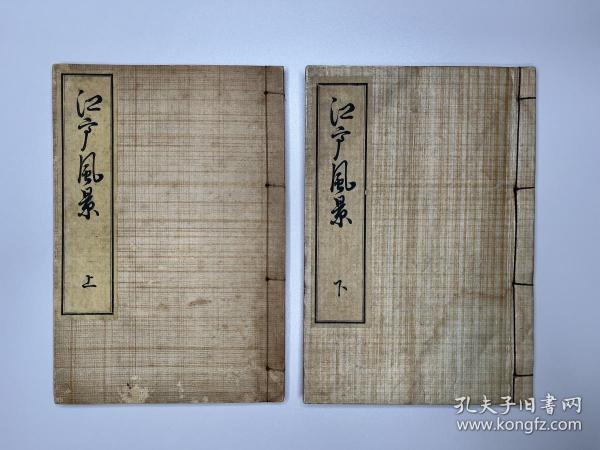 江戸風景
上
江戸風景
下
孔夫子旧書网
www.kongfz.com